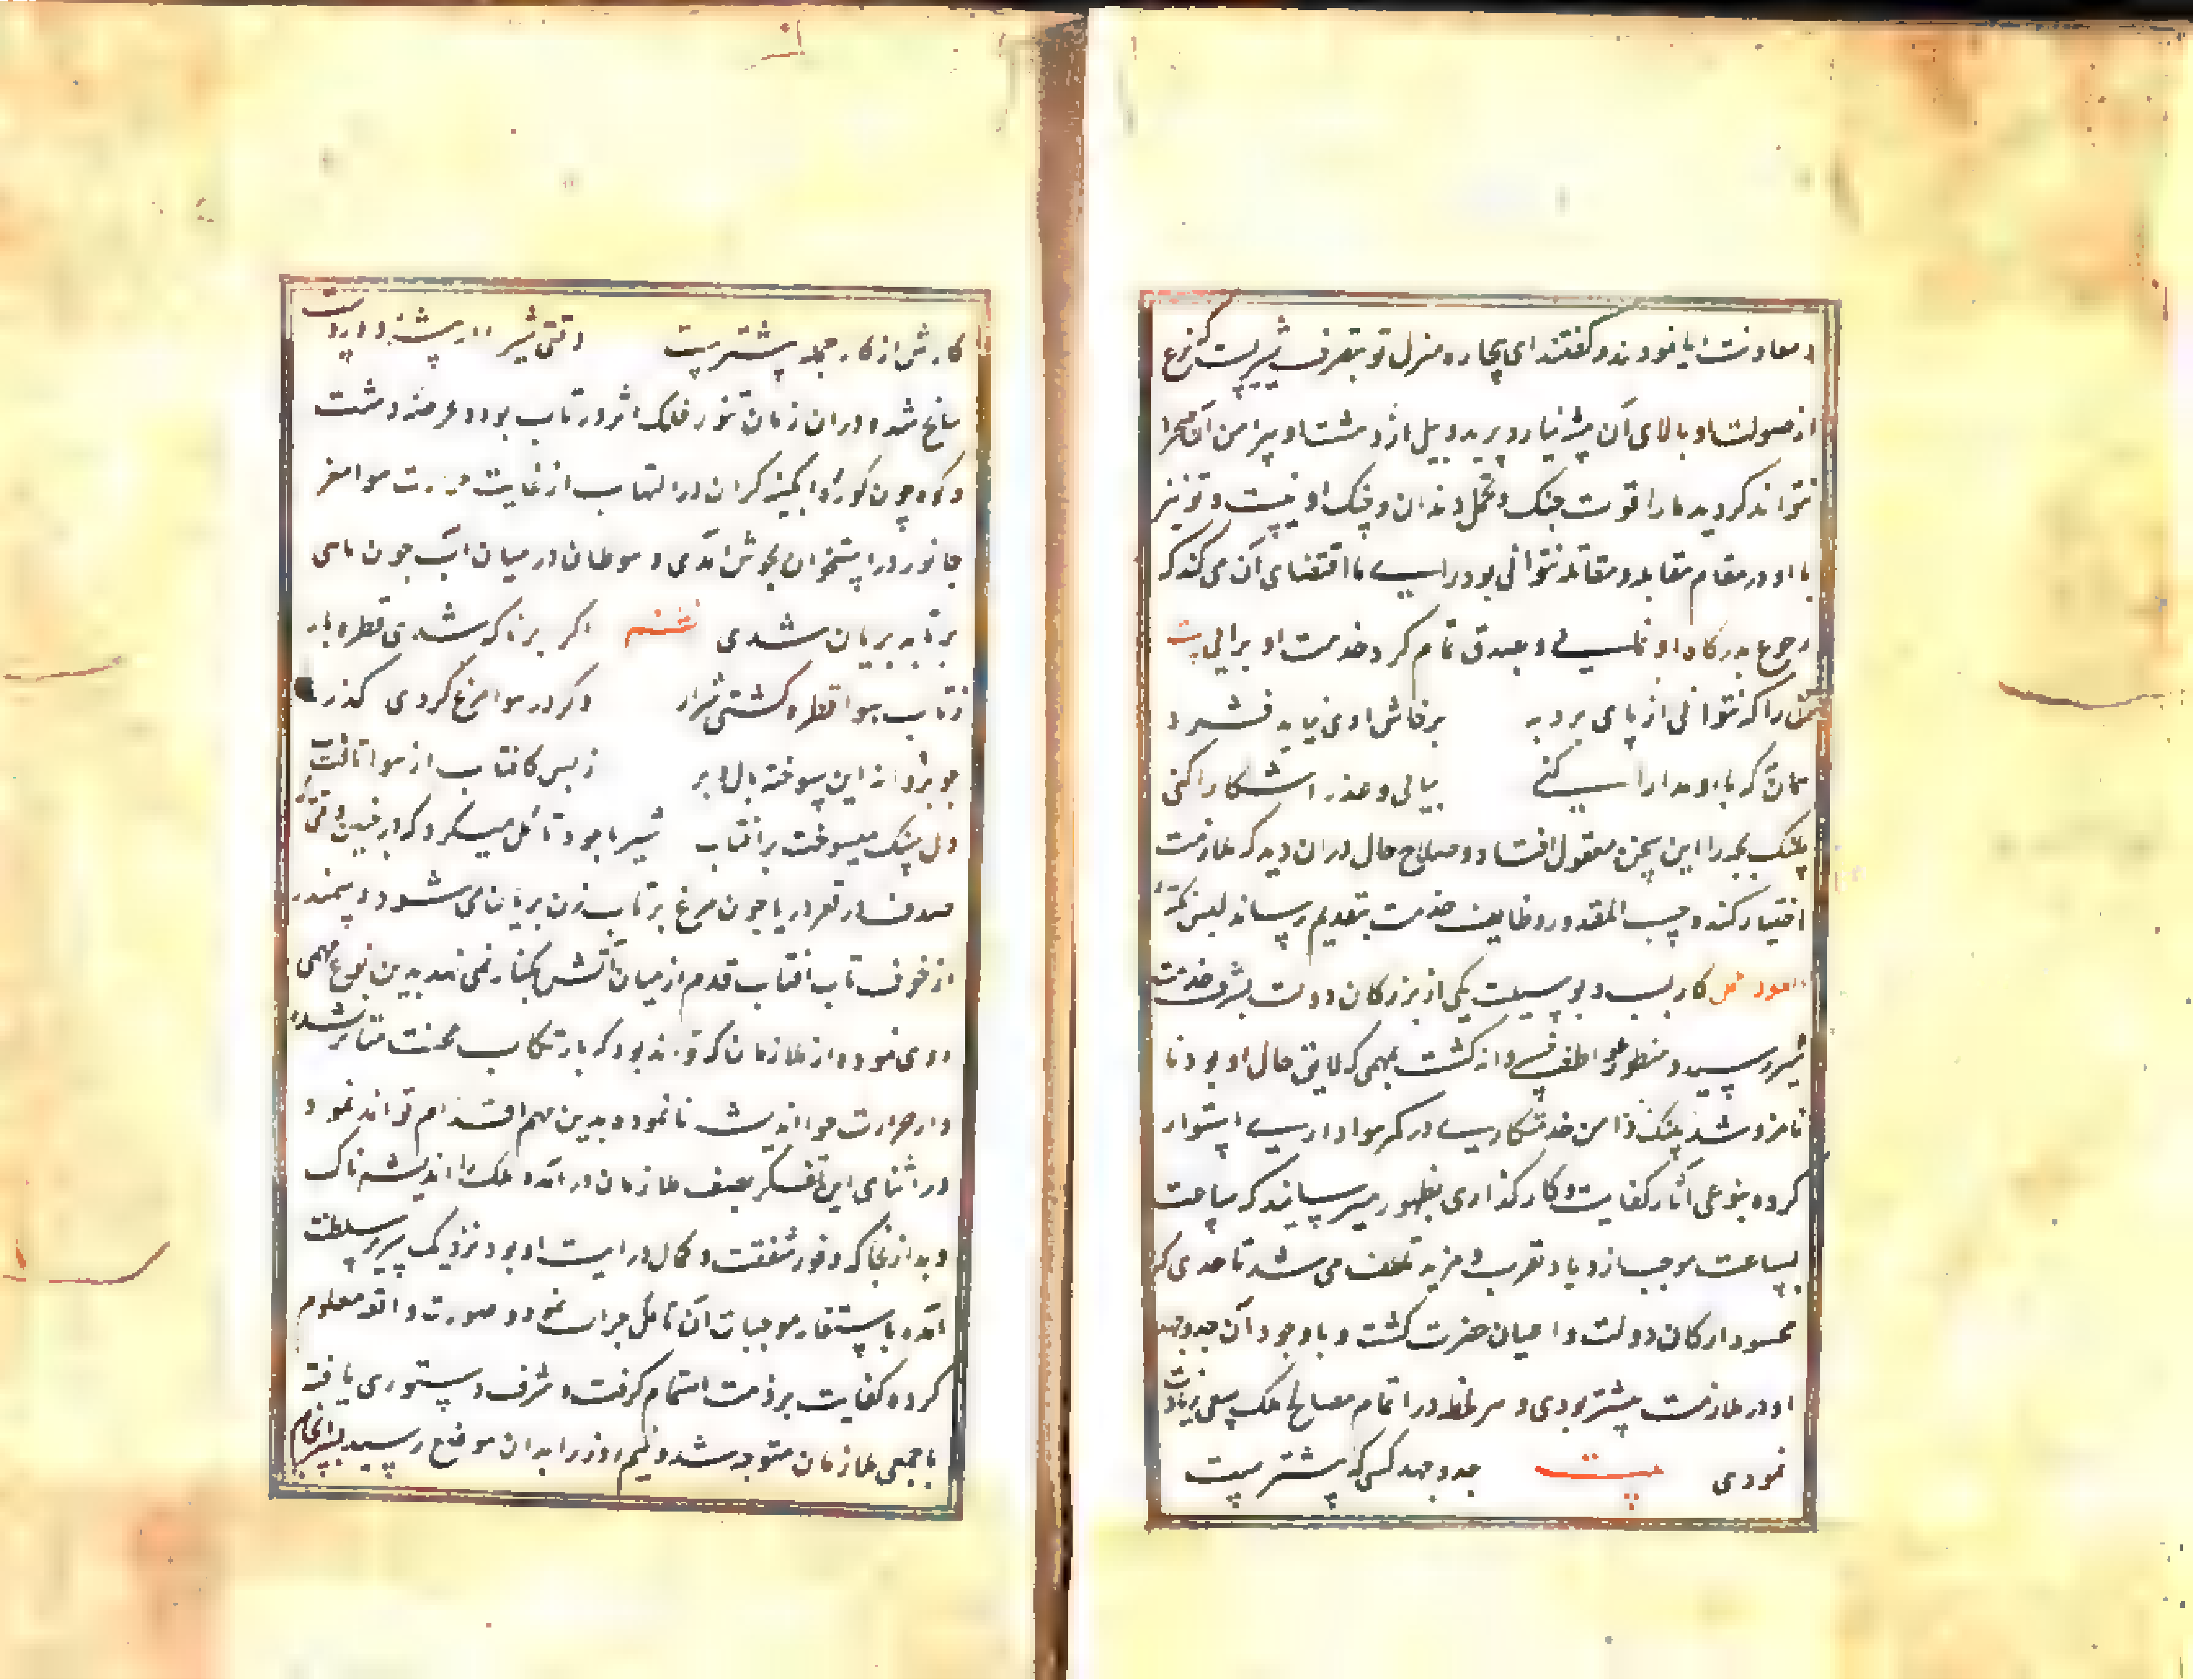 و معاونت ابا نمودند و گفتند ای بیچاره منزل تو بتصرف شیریست که مرغ
از صولت او بالای آن بیشه نیارد پرید و پیل از دهشت او پیرامن آن صحرا
نتواند گردید ما را قوت جنک و تحمل دندان و چنک او نیست و تو نیز
با او در مقام مقابله و مقاتله نتوانی بود رای ما اقتضای آن می کند که
رجوع بدرگاه او نمایی و بصدق تمام گرد خدمت او برایی بیت
را که نتوانی از پای برد به پرخاش او پی نباید فشرد
همان که با او مدارا کنی بیایی و عذر آشکارا کنی
پلنک بچه را این سخن معقول افتاد و صلاح حال دران دید که ملازمت
اختیار کند و حسب المقدور وظایف خدمت بتقدیم رساند پس نکته
العود احمد کار بست و بوسیلت یکی از بزرگان دولت بشرف خدمت
شیر رسید و منظور عواطف خسروانه گشت بمهمی که لایق حال او بود نا
نامزد شد پلنک دامن خدمتکاری در کمر هواداری استوار
کرده بنوعی آثار کفایت و کارگذاری بظهور میرسانید که ساعت
بساعت موجب ازدیاد تقرب و مزید تلطف می شد تا حدی که
محسود ارکان دولت و اعیان حضرت گشت و با وجود آن جد و جهد
او در ملازمت بیشتر بودی و هر لحظه در اتمام مصالح ملک سعی زیادت
نمودی بیت جد و جهد کسی که بیشترست
کارش از کار جمله بیشترست وقتی شیر را در بیشه دوردست
سانح شد و دران زمان تنور فلک اثر در تاب بود و عرصه دشت
و کوه چون کوره آبگینه گران در التهاب از غایت حرارت هوا مغز
جانور در استخوان بجوش آمدی و سرطان در میان آب چون ماهی
بر تابه بریان شدی نظم اگر بر ناگه شدی قطره بار
ز تاب هوا قطره گشتی شرار وگر در هوا مرغ کردی گذر
چو پروانه این سوخته بال و پر ز بس کافتاب از هوا تافت
دل سنک میسوخت بر آفتاب شیر با خود تامل میکرد که در چنین وقتی
صدف در قعر دریا چون مرغ بر تاب زن بریان می شود و سمندر
از خوف تاب آفتاب قدم از میان آتش بکنار نمی نهد بدین نوع مهمی
روی نمود و از ملازمان که تواند بود که بارتکاب محنت متاثر نشده
و از حرارت هوا اندیشه نا نموده بدین مهم اقدام تواند نمود
در اثنای این تفکر بصف ملازمان درآمد و ملک را اندیشه ناک
دید از آنجا که وفور شفقت و کمال درایت او بود نزدیک سریر سلطنت
آمده باستفسار موجبات آن تامل جرات نمود و صورت واقعه معلوم
کرده کفایت بر ذمت اهتمام گرفت و شرف دستوری یافته
با جمعی ملازمان متوجه شد و نیم روز را بدان موضع رسید بسرانجام